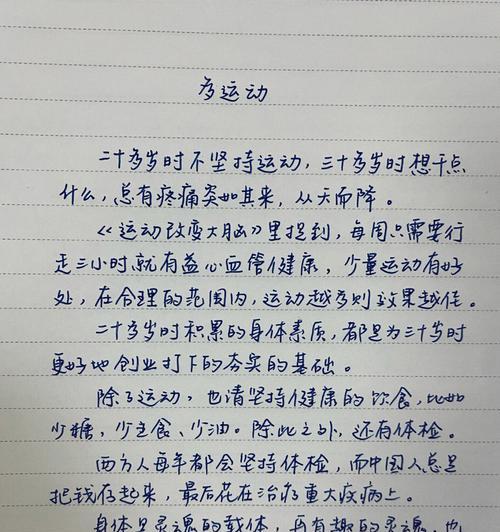 多运动
二十多岁时不坚持运动，三十多岁时想干点
什么，总有疼痛突如其来，从天而降。
《运动改变大脑》里提到，每周只需要行
走三小时就有益心血管健康，少量运动有好
处，在合理的范围内，运动越多则效果越佳。
二十多岁时积累的身体素质，都是为三十岁时
更好地创业打下的夯实的基础。
除了运动，也请坚持健康的饮食，比如
少糖，少主食、少油。除此之外，还有体检。
西方人每年都会坚持体检，而中国人总是
把钱存起来，最后花在治疗重大疾病上。
身体是灵魂的载体，再有趣的灵魂，也